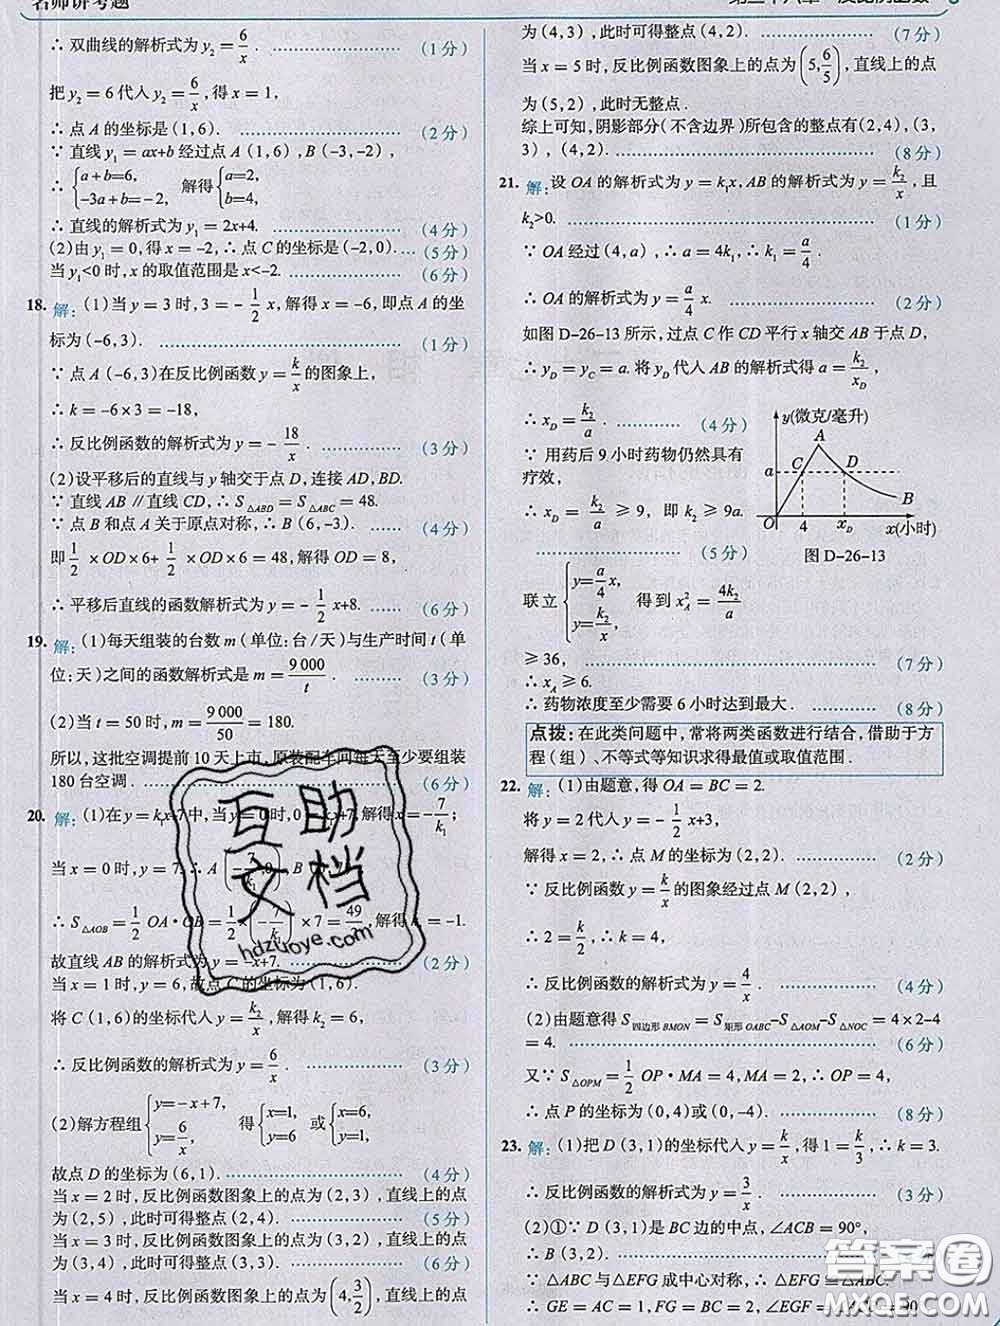 名师讲考题
∴ 双曲线的解析式为 y₂=6/x. (1分)
把 y₂=6 代入 y₂=6/x,得 x=1,
∴ 点 A 的坐标是(1,6). (2分)
∵ 直线 y₁=ax+b 经过点 A(1,6),B(-3,-2),
∴ {a+b=6, -3a+b=-2, 解得{a=2, b=4,
∴ 直线的解析式为 y₁=2x+4. (4分)
(2)由 y₁=0,得 x=-2,∴ 点 C 的坐标是(-2,0). (5分)
当 y₁<0 时,x 的取值范围是 x<-2. (6分)
18. 解:(1)当 y=3 时,3=-1/2 x,解得 x=-6,即点 A 的坐
标为(-6,3). (1分)
∵ 点 A(-6,3)在反比例函数 y=k/x 的图象上,
∴ k=-6×3=-18,
∴ 反比例函数的解析式为 y=-18/x. (3分)
(2)设平移后的直线与 y 轴交于点 D,连接 AD,BD.
∵ 直线 AB∥直线 CD,∴ S△ABD=S△ABC=48.
∵ 点 B 和点 A 关于原点对称,∴ B(6,-3). (4分)
即 1/2×OD×6+1/2×OD×6=48,解得 OD=8,
∴ 平移后直线的函数解析式为 y=-1/2 x+8. (6分)
19. 解:(1)每天组装的台数 m(单位:台/天)与生产时间 t(单
位:天)之间的函数解析式是 m=9 000/t. (3分)
(2)当 t=50 时,m=9 000/50=180.
所以,这批空调提前 10 天上市,原装配车间每天至少要组装
180 台空调. (6分)
20. 解:(1)在 y=k₁x+7 中,当 y=0 时,0=k₁x+7,解得 x=-7/k₁;
当 x=0 时,y=7,∴ A(-7/k₁,0),B
∴ S△AOB=1/2 OA·OB=1/2×(-7/k₁)×7=49/ ,解得 k₁=-1.
故直线 AB 的解析式为 y=-x+7. (2分)
当 x=1 时,y=6,故点 C 的坐标为(1,6).
将 C(1,6)的坐标代入 y=k₂/x,解得 k₂=6,
∴ 反比例函数的解析式为 y=6/x. (3分)
(2)解方程组{y=-x+7, y=6/x, 得{x=1, y=6 或{x=6, y=1.
故点 D 的坐标为(6,1). (4分)
当 x=2 时,反比例函数图象上的点为(2,3),直线上的点
为(2,5),此时可得整点(2,4). (5分)
当 x=3 时,反比例函数图象上的点为(3,2),直线上的点
为(3,4),此时可得整点(3,3). (6分)
当 x=4 时,反比例函数图象上的点为(4,3/2),直线上的点
为(4,3),此时可得整点(4,2). (7分)
当 x=5 时,反比例函数图象上的点为(5,6/5),直线上的点
为(5,2),此时无整点.
综上可知,阴影部分(不含边界)所包含的整点有(2,4),(3,
3),(4,2). (8分)
21. 解:设 OA 的解析式为 y=k₁x,AB 的解析式为 y=k₂/x,且
k₂>0. (1分)
∵ OA 经过(4,a),∴ a=4k₁,∴ k₁=a/4.
∴ OA 的解析式为 y=a/4 x. (2分)
如图 D-26-13 所示,过点 C 作 CD 平行 x 轴交 AB 于点 D,
∴ y_D=y_C=a. 将 y_D 代入 AB 的解析式得 a=k₂/x,
∴ x_D=k₂/a. (4分)
∵ 用药后 9 小时药物仍然具有
疗效,
∴ x_D=k₂/a≥9,即 k₂≥9a.
(5分)
y(微克/毫升)
A
a C D
B
O 4 x_D x(小时)
图 D-26-13
联立{y=a/4 x, y=k₂/x, 得到 x_A²=4k₂/a
≥36, (7分)
∴ x_A≥6.
∴ 药物浓度至少需要 6 小时达到最大. (8分)
点拨:在此类问题中,常将两类函数进行结合,借助于方
程(组)、不等式等知识求得最值或取值范围.
22. 解:(1)由题意,得 OA=BC=2.
将 y=2 代入 y=-1/2 x+3,
解得 x=2,∴ 点 M 的坐标为(2,2). (2分)
∵ 反比例函数 y=k/x 的图象经过点 M(2,2),
∴ 2=k/2,∴ k=4,
∴ 反比例函数的解析式为 y=4/x. (4分)
(2)由题意得 S四边形BMON=S矩形OABC-S△AOM-S△NOC=4×2-4
=4. (6分)
又∵ S△OPM=1/2 OP·MA=4,MA=2,∴ OP=4,
∴ 点 P 的坐标为(0,4)或(0,-4). (8分)
23. 解:(1)把 D(3,1)的坐标代入 y=k/x,得 1=k/3,∴ k=3.
∴ 反比例函数的解析式为 y=3/x. (3分)
(2)①∵ D(3,1)是 BC 边的中点,∠ACB=90°,
∴ B(3,2).
∵ △ABC 与△EFG 成中心对称,∴ △EFG≌△ABC.
∴ GE=AC=1,GF=BC=2,∠EGF=∠ACB=90°
互助
文档
hdzuoye.com
答案圈
MXQE.COM